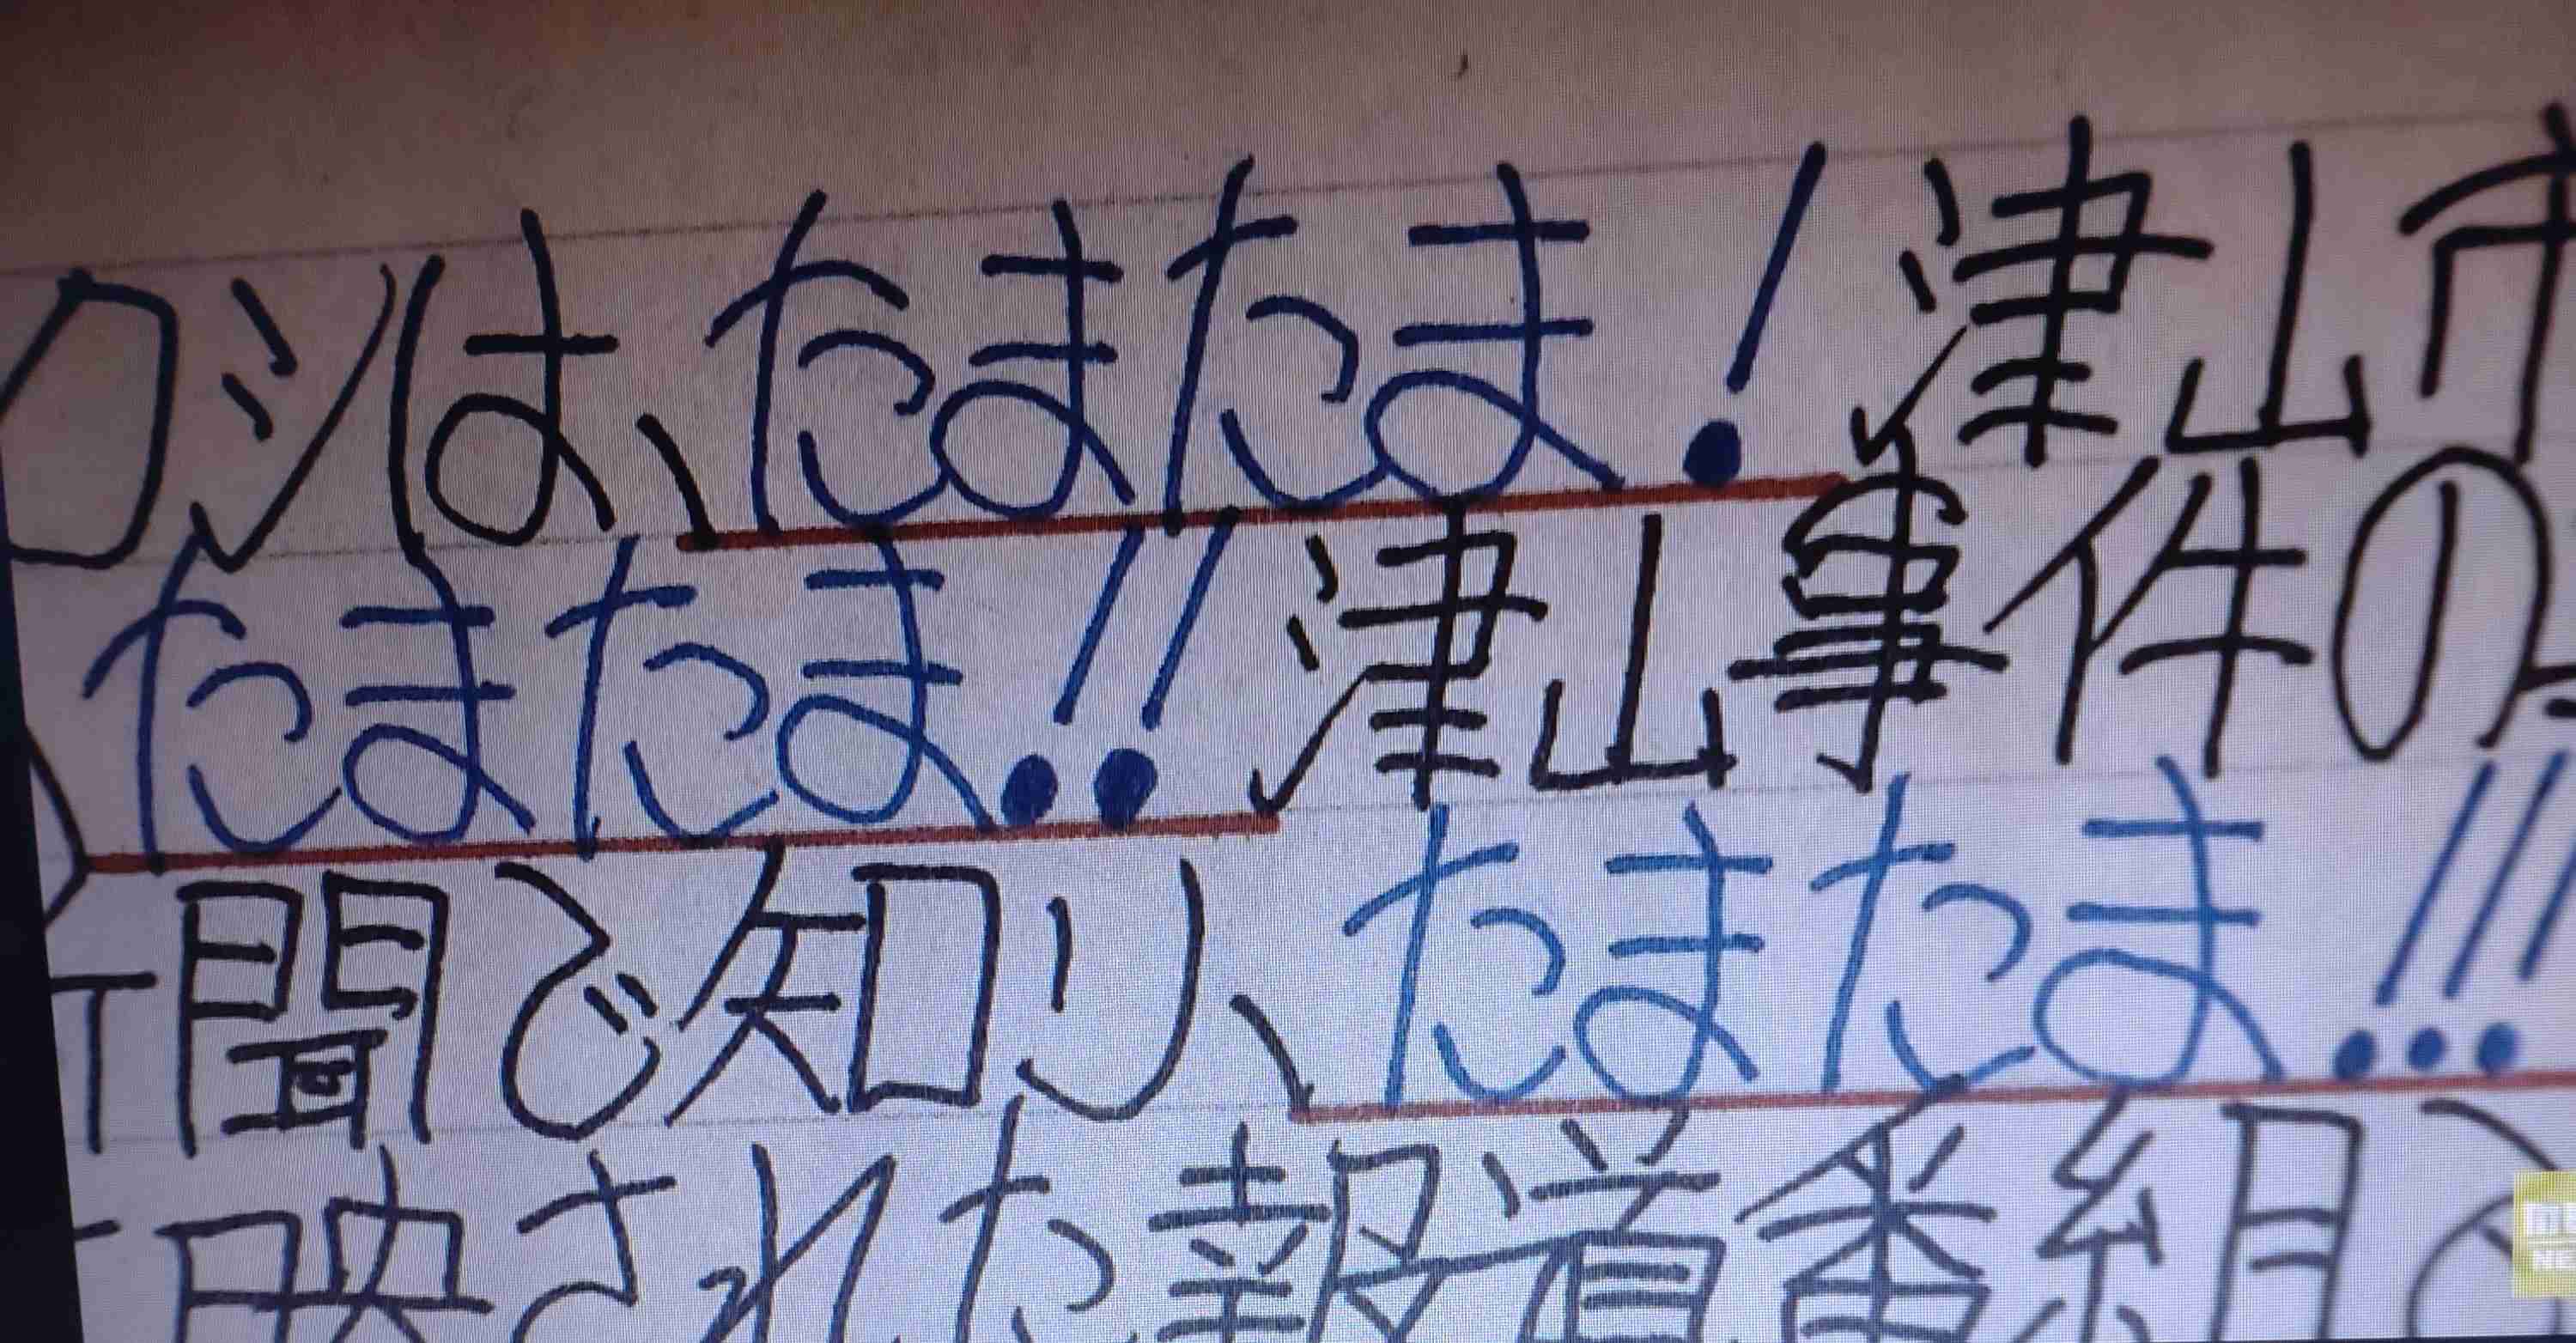 ロシは、たまたま！津山市
たまたま！！津山事件の
聞で知り、たまたま！！！
映された報道番組で